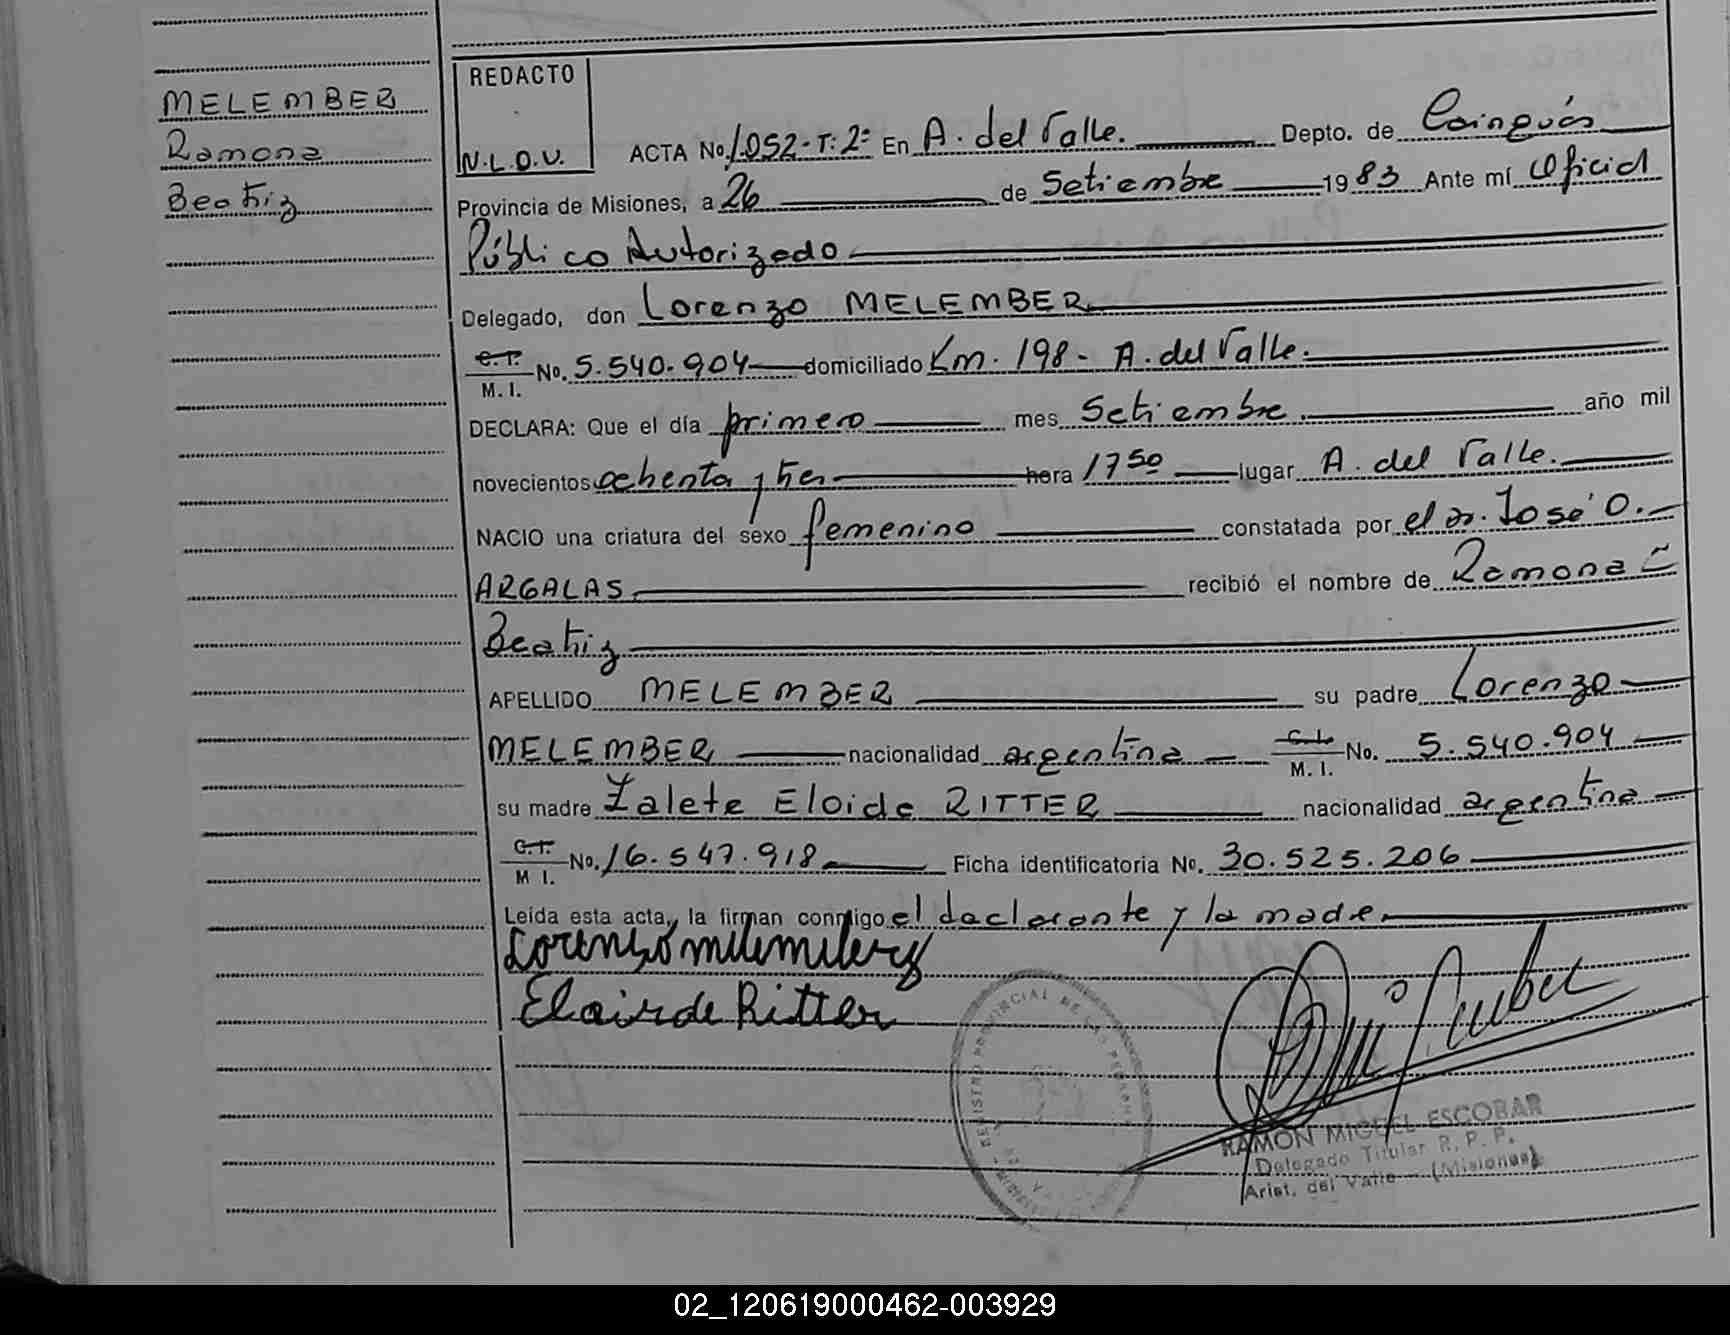 MELEMBER
Ramona
Beatriz
REDACTO
N.L.O.V.
ACTA No. 1.052-T:2º En A. del Valle. Depto. de Cainguás
Provincia de Misiones, a 26 de Setiembre 1983 Ante mí Oficial
Público Autorizado
Delegado, don Lorenzo MELEMBER
C.I. M.I. No. 5.540.904 domiciliado Km. 198- A. del Valle.
DECLARA: Que el día primero mes Setiembre. año mil
novecientos ochenta y tres hora 17 50 lugar A. del Valle.
NACIO una criatura del sexo femenino constatada por el Dr. José O.
ARGALAS recibió el nombre de Ramona
Beatriz
APELLIDO MELEMBER su padre Lorenzo
MELEMBER nacionalidad argentina C.I. M.I. No. 5.540.904
su madre Zalete Eloide RITTER nacionalidad argentina
C.I. M I. No. 16.547.918 Ficha identificatoria No. 30.525.206
Leída esta acta, la firman conmigo el declarante y la madre.
Lorenso
Ritter
REGISTRO PROVINCIAL DE LAS PERSONAS
RAMON MIGUEL ESCOBAR
Delegado Titular R. P. P.
Arist. del Valle - (Misiones)
02_120619000462-003929